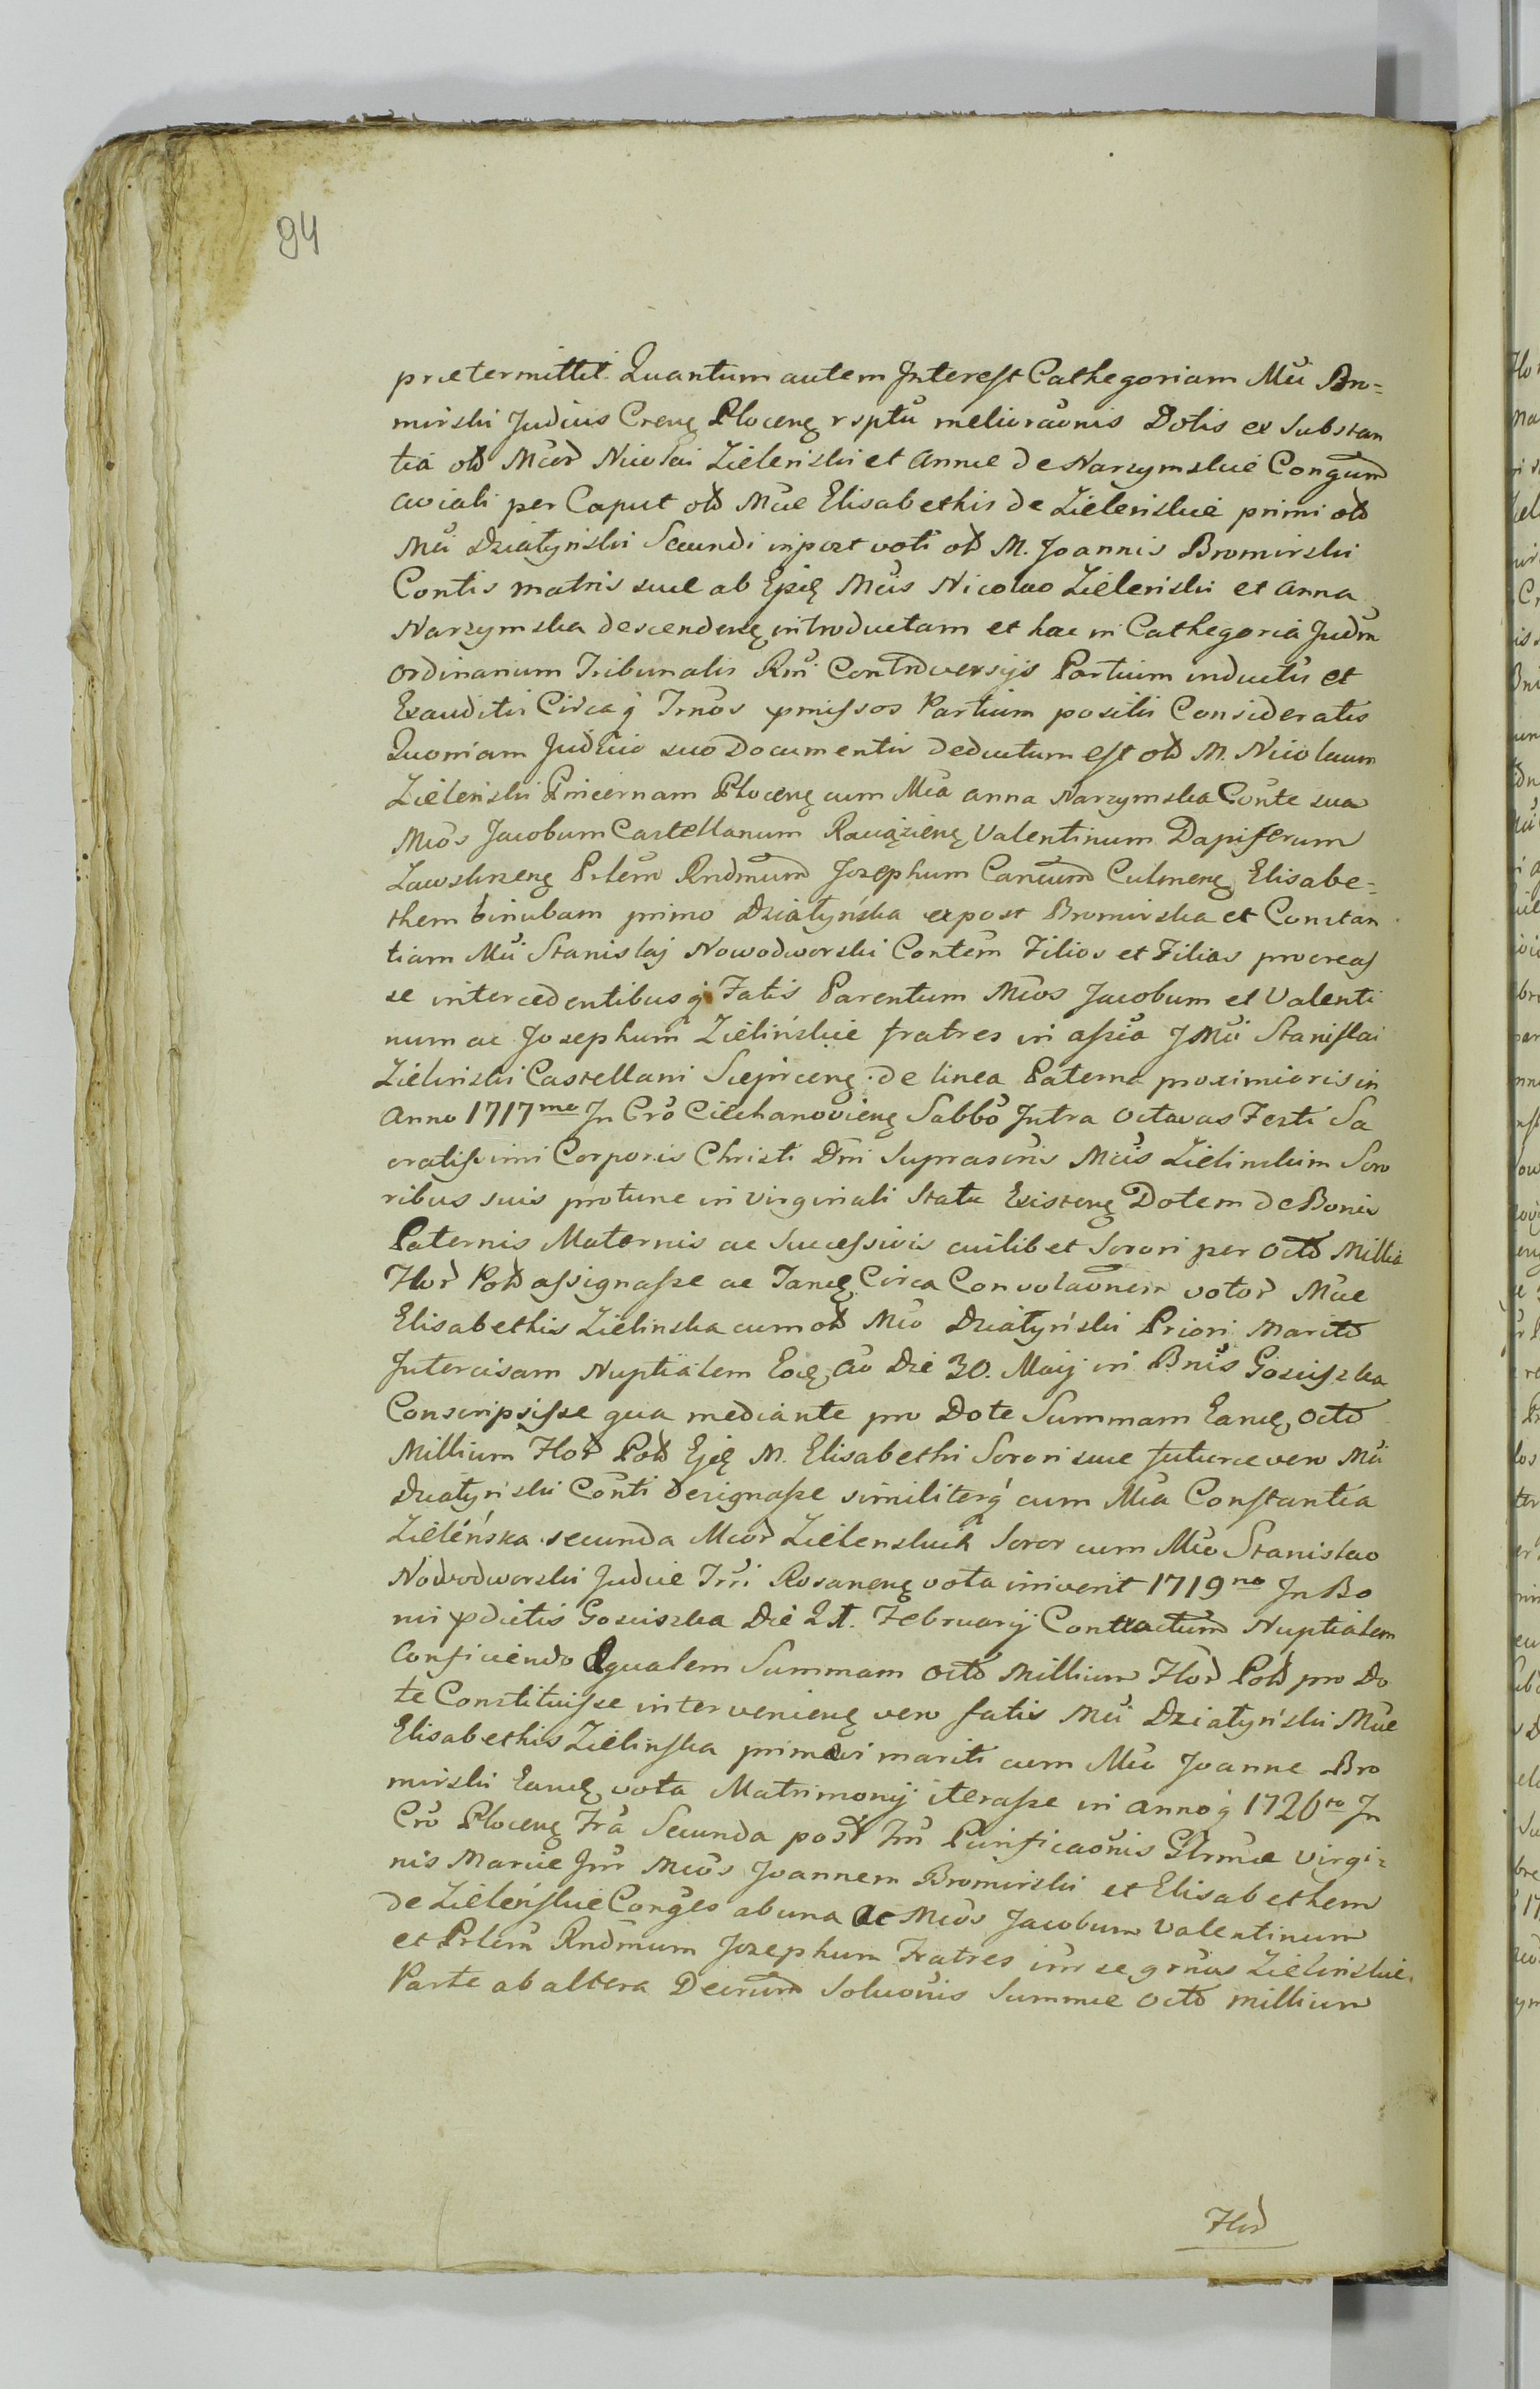 94
prætermittit. Quantum autem Interest Cathegoriam Mci Bro=
mirski Judicis Crens Plocens rsptu meliorãonis Dotis ex Substan
tiá olt Mcor Nicolai Zielenski et Annæ de Narzymskie Congum
aviali per Caput olt Mcae Elisabethis de Zielenskie primi olt
Mci Dziatyński Secundi in post voti olt M. Joannis Bromirski
Contis matris suæ ab Ejsis Mcis Nicolao Zielenski et Anna
Narzymska descendens introductam et hac in Cathegoria Judm
Ordinarium Tribunalis Rni Controversijs Partium inductis et
Exauditis Circaq Trnos pmissos Partium positis Consideratis
Quoniam Judicio suo Documentis deductum est olt M. Nicolaum
Zielenski Pincernam Plocens cum Mca Anna Narzymska Conte sua
Mcos Jacobum Castellanum Raciąziens Valentinum Dapiferum
Zawskrzens Prlem Rndmum Josephum Cancum Culmens Elisabe=
them binubam primo Dziatyńska expost Bromirska et Constan
tiam Mci Stanislaj Nowodworski Contem Filios et Filias procreas
se intercedentibusq Fatis Parentum Mcos Jacobum et Valenti
num ac Josephum Zielińskie fratres in assia JMci Stanislai
Zielinski Castellani Sieprcens de linea Paterna proximioris in
Anno 1717mo In Cro Ciechanoviens Sabbo Intra Octavas Festi Sa
cratissimi Corporis Christi Dni Suprascris Mcis Zielinskim Soro
ribus suis protunc in virginali Statu Existens Dotem de Bonis
Paternis Maternis ac Successivis cuilibet Sorori per Octo Millia
Flor Polt assignasse ac Tands Circa Convolaonem votor Mcae
Elisabethis Zielinska cum olt Mco Dziatyński Priori Marito
Intercisam Nuptialem Eods Ao Die 30. Maij in Bnis Gosciszka
Conscripsisse qua mediante pro Dote Summam Eands Octo
Millium Flor Polt Ejds M. Elisabethi Sorori suæ futuræ vero Mci
Dziatyński Conti designasse similiterq cum Mca Constantia
Zieléńska secunda Mcor Zielenskich Soror cum Mco Stanislao
Nowodworski Judice Trri Rosanens vota inivent 1719no In Bo
nis pdictis Gosciszka Die 21. Februarij Contractum Nuptialem
Conficiendo Æqualem Summam Octo Millium Flor Polt pro Do
te Constituisse interveniens vero fatis Mci Dziatyński Mcae
Elisabethis Zielinska primævi mariti cum Mco Joanne Bro
mirski Eands vota Matrimonij iterasse in annoq 1726to In
Cro Plocens Fra Secunda post Fm Purificaonis Glrmæ Virgi=
nis Mariæ Inr Mcos Joannem Bromirski et Elisabethem
de Zieleńskie Conges ab una ac Mcos Jacobum Valentinum
et Prlem Rndmum Josephum Fratres inr se grnos Zielinskie
Parte ab altera Decrum Soluonis Summæ Octo millium
Flor